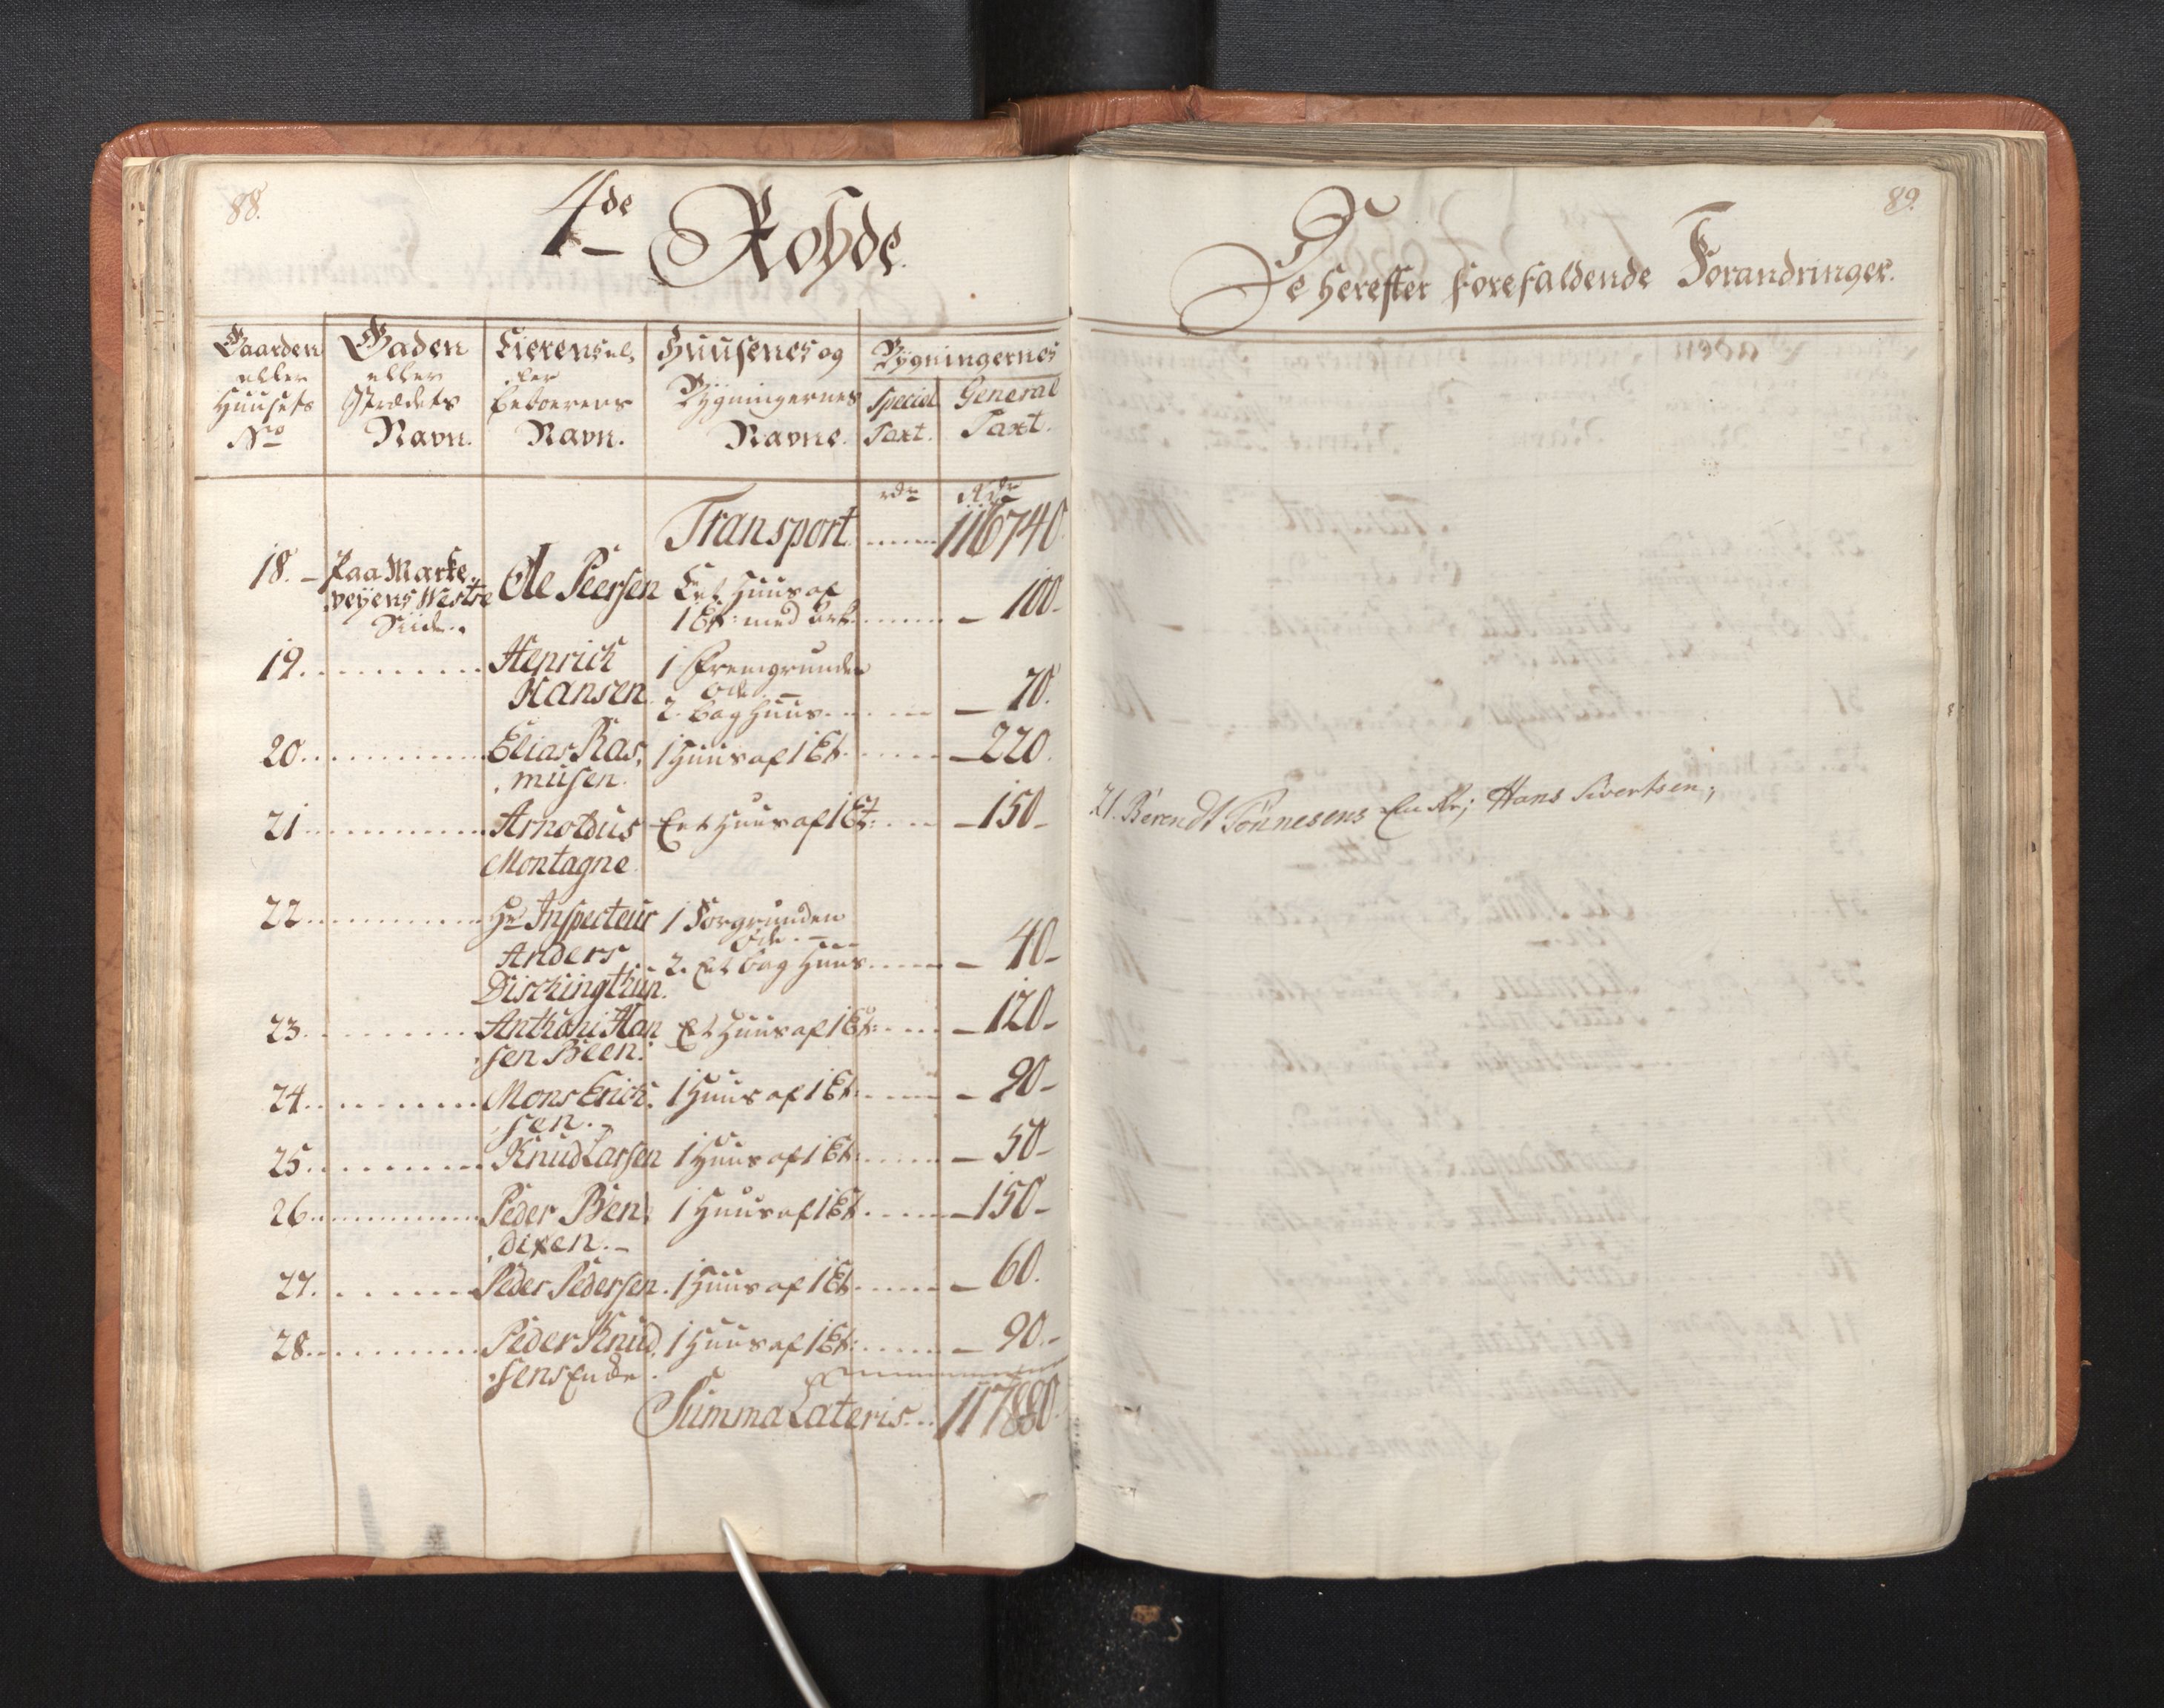 88.
4de Rohde.
Gaarden eller Huusets No
Gaden eller Strædets Navn.
Eierens eller Beboerens Navn.
Huusenes og Bygningernes Navne.
Bygningernes
Special Taxt.
General Taxt.
rdr Rdr
Transport ..... 116740.
18. - Paa Marke- Ole Peersen Eet Huus af
veyens Westre 1 Et: med Ark ..... - 100-
Siide.
19. ........ Henrich 1 Fremgrunden
Hansen øde. -
2. Baghuus ..... - 70.
20. ........ Elias Ras, 1 Huus af 1 Et ..... - 220.
, musen.
21 ........ Arnoldus Eet Huus af 1 Et: ..... - 150-
Montagne
22 ........ Hr Inspecteur 1 Forgrunden
Anders øde. -
2. Et Bag Huus ..... - 40-
Dischingthun.
23. ........ Anthoni Han Et Huus af 1 Et: ..... - 120-
, sen Been.
24. ........ Mons Erich, 1 Huus af 1 Et. ..... - 90-
, sen. -
25. ........ Knud Larsen 1 Huus af 1 Et. ..... - 50-
26. ........ Peder Ben, 1 Huus af 1 Et ..... - 150-
, dixen. -
27. ........ Peder Pedersen. 1 Huus af 1 Et ..... - 60.
28. ........ Peder Knud, 1 Huus af 1 Et: ..... - 90.-
, sens Enke.
Summa Lateris... 117880.
89.
De herefter forefaldende Forandringer.
21. Berendt Tönnesens Enke; Hans Sivertsen;